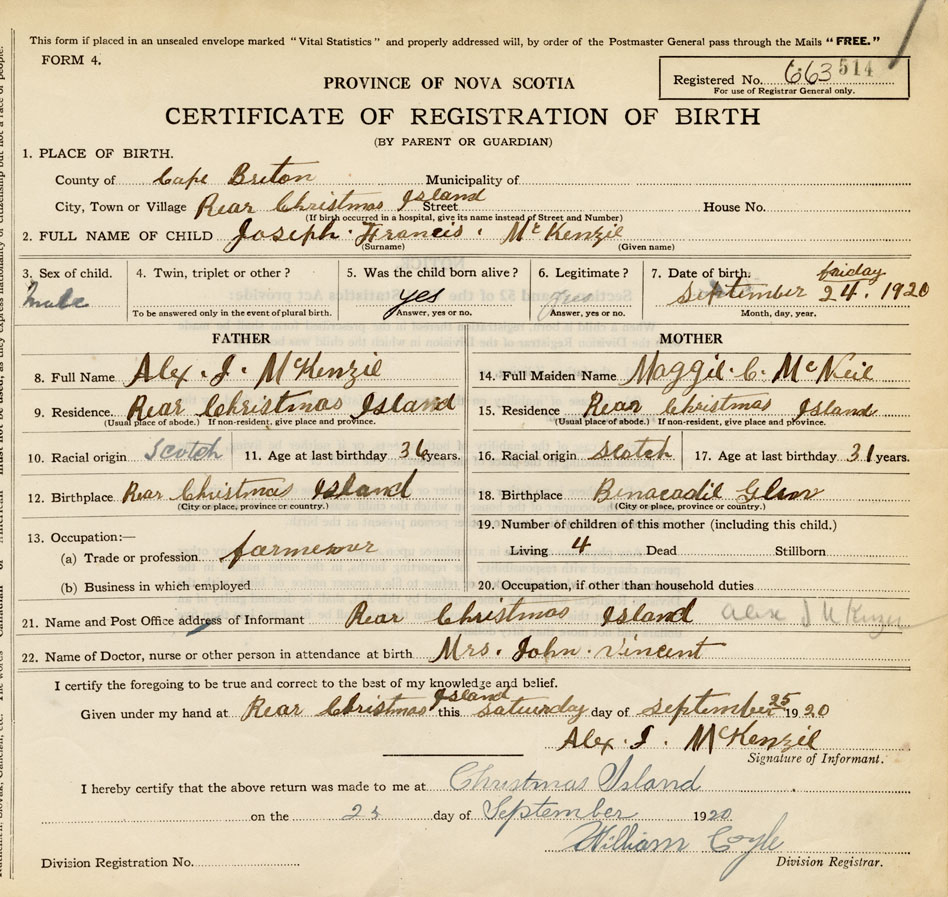 This form if placed in an unsealed envelope marked "Vital Statistics" and properly addressed will, by order of the Postmaster General pass through the Mails "FREE."
FORM 4.
Registered No. 663 514
For use of Registrar General only.
PROVINCE OF NOVA SCOTIA
CERTIFICATE OF REGISTRATION OF BIRTH
(BY PARENT OR GUARDIAN)
1. PLACE OF BIRTH.
County of Cape Briton Municipality of
City, Town or Village Rear Christmas Island Street House No.
(If birth occurred in a hospital, give its name instead of Street and Number)
2. FULL NAME OF CHILD Joseph. Francis. McKenzil
(Surname) (Given name)
3. Sex of child. 4. Twin, triplet or other? 5. Was the child born alive? 6. Legitimate? 7. Date of birth. friday
male yes yes September 24. 1920
To be answered only in the event of plural birth. Answer, yes or no. Answer, yes or no. Month, day, year.
FATHER MOTHER
8. Full Name Alex. J. McKenzil
14. Full Maiden Name Maggie. C. McNeil
9. Residence. Rear Christmas Island
(Usual place of abode.) If non-resident, give place and province.
15. Residence Rear Christmas Island
(Usual place of abode.) If non-resident, give place and province.
10. Racial origin Scotch 11. Age at last birthday 36 years.
16. Racial origin Scotch 17. Age at last birthday 31 years.
12. Birthplace Rear Christmas Island
(City or place, province or country.)
18. Birthplace Benacadil Glen
(City or place, province or country.)
13. Occupation:—
(a) Trade or profession
(b) Business in which employed
19. Number of children of this mother (including this child.)
Living 4 Dead Stillborn
20. Occupation, if other than household duties
21. Name and Post Office address of Informant Rear Christmas Island Alex J McKenzie
22. Name of Doctor, nurse or other person in attendance at birth Mrs. John. Vincent
I certify the foregoing to be true and correct to the best of my knowledge and belief.
Given under my hand at Rear Christmas Island this Saturday day of September 25 1920
Alex. J. McKenzil
Signature of Informant.
I hereby certify that the above return was made to me at Christmas Island
on the 25 day of September 1920
William Coyle
Division Registration No. Division Registrar.